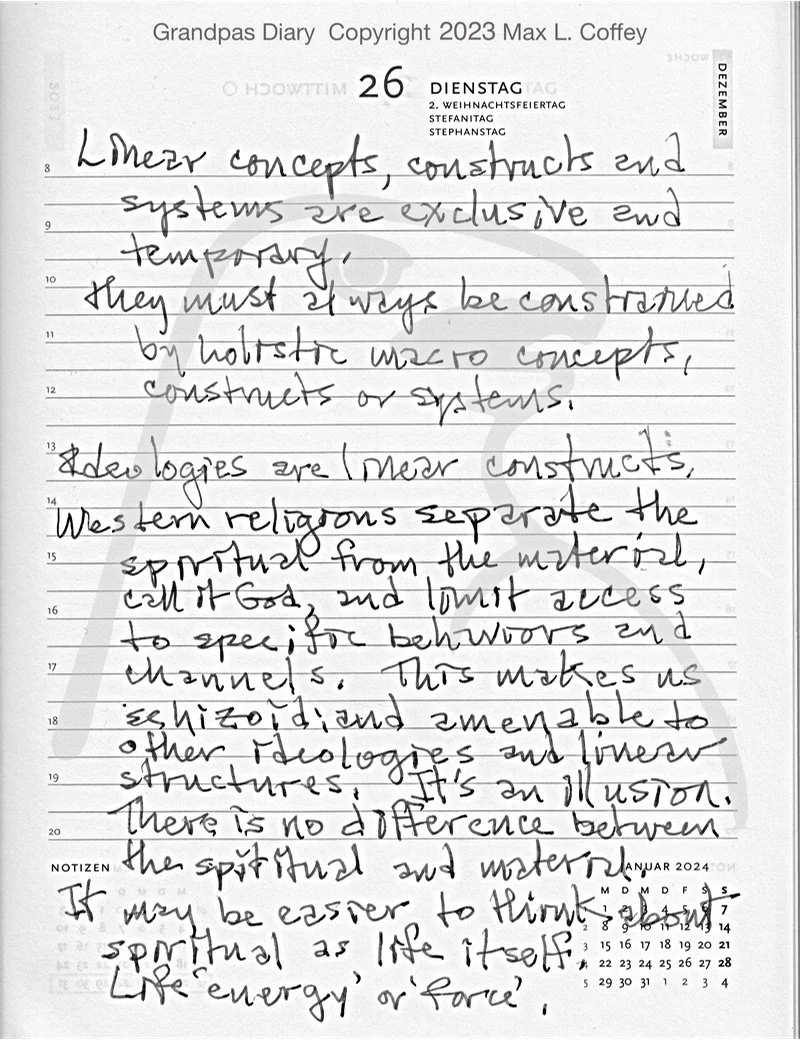 Grandpas Diary Copyright 2023 Max L. Coffey
26 DIENSTAG
2. WEIHNACHTSFEIERTAG
STEFANITAG
STEPHANSTAG
DEZEMBER
8 Linear concepts, constructs and
systems are exclusive and
9
temporary.
10 they must always be constrained
11
by holistic macro concepts,
12 constructs or systems.
13
Ideologies are linear constructs.
14
Western religions separate the
15 spiritual from the material,
call it God, and limit access
16
to specific behaviors and
17
channels. This makes us
18 schizoid; and amenable to
other ideologies and linear
19 structures. It's an illusion.
There is no difference between
20
NOTIZEN the spiritual and material. JANUAR 2024
M D M D F S S
It may be easier to think about
1 1 2 3 4 5 6 7
2 8 9 10 11 12 13 14
spiritual as life itself.
3 15 16 17 18 19 20 21
4 22 23 24 25 26 27 28
Life 'energy' or 'force'.
5 29 30 31 1 2 3 4